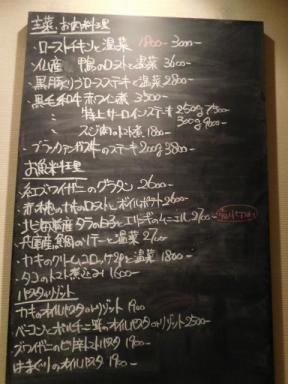 主菜 お肉料理
・ローストチキンと温菜 1800- 3000-
・仏産 鴨のローストと温菜 3600-
・黒豚 ロースステーキと温菜 2800-
・黒毛和牛 赤ワイン煮 3500-
・〃 特上サーロインステーキ 250g 7500
300g 9000-
・〃 スジ肉のトマト煮 1800-
・ブラックアンガス牛のステーキ 200g 3800-
お魚料理
ズワイガニのグラタン 2600-
2600-
・北海道産 タラの白子とエリンギのムニエル 2700-
・兵庫産 鯛のソテーと温菜 2700-
・カキのクリームコロッケ 2ヶと温菜 1800-
・タコのトマト煮込み 1600-
パスタとリゾット
カキのオイルパスタorリゾット 1900
ベーコンとポルチーニ茸のオイルパスタorリゾット 2500-
ズワイガニのトマトパスタ 1900-
はまぐりのオイルパスタ 1900-